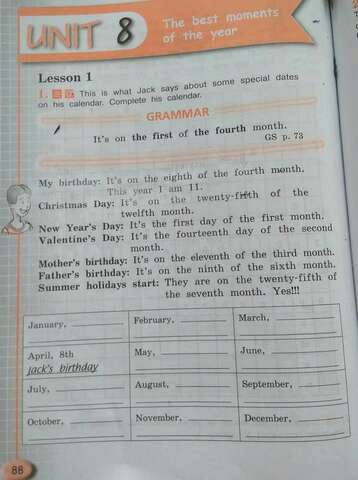 UNIT 8
The best moments
of the year
Lesson 1
1. This is what Jack says about some special dates
on his calendar. Complete his calendar.
GRAMMAR
It's on the first of the fourth month.
GS p. 73
My birthday: It's on the eighth of the fourth month.
This year I am 11.
Christmas Day: It's on the twenty-fifth of the
twelfth month.
New Year's Day: It's the first day of the first month.
Valentine's Day: It's the fourteenth day of the second
month.
Mother's birthday: It's on the eleventh of the third month.
Father's birthday: It's on the ninth of the sixth month.
Summer holidays start: They are on the twenty-fifth of
the seventh month. Yes!!!
January, February, March,
April, 8th May, June,
Jack's birthday
July, August, September,
October, November, December,
88